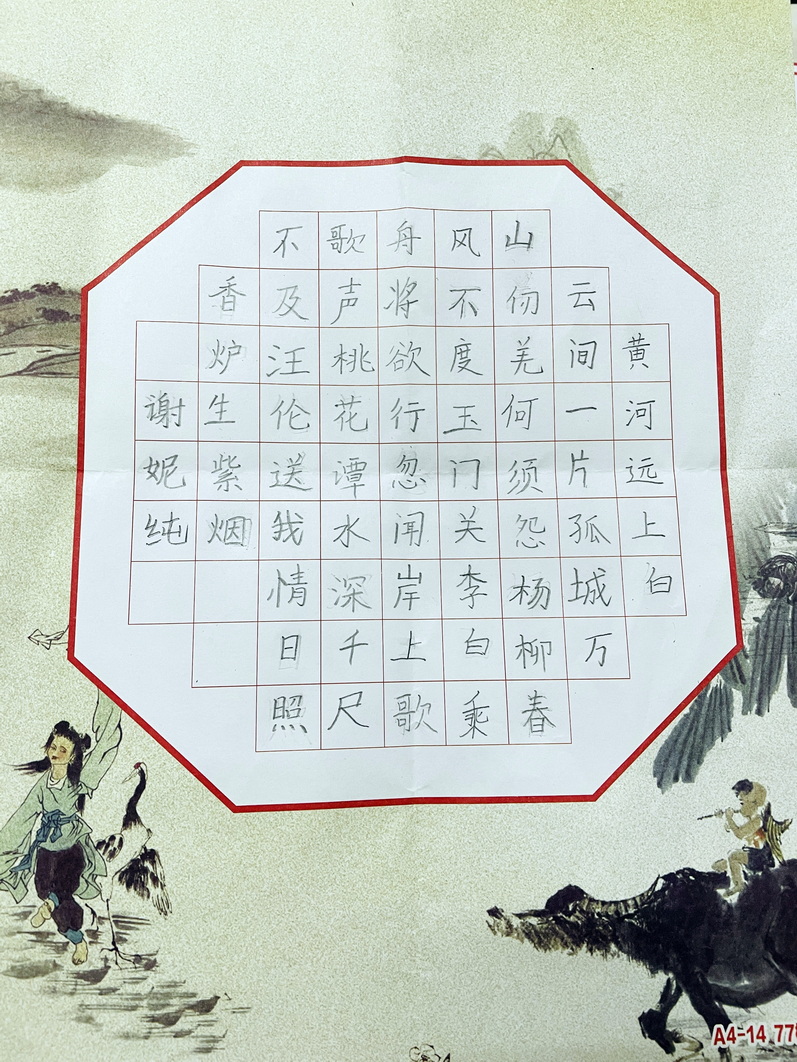 黄河远上白
云间一片孤城万
山仞羌何须怨杨柳春
风不度玉门关李白乘
舟将欲行忽闻岸上歌
歌声桃花谭水深千尺
不及汪伦送我情日照
香炉生紫烟
谢妮纯
A4-14